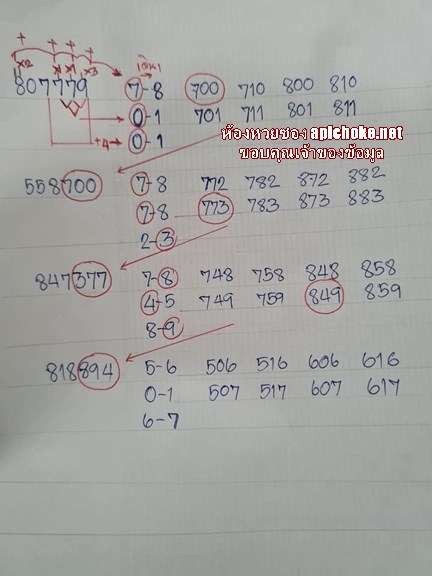 + + + +
x2 x1 x1 x3
807779 7-8 700 710 800 810
0-1 701 711 801 811
+4 0-1
ห้องหวยซอง apichoke.net
ขอบคุณเจ้าของข้อมูล
558700 7-8 772 782 872 882
7-8 773 783 873 883
2-3
847377 7-8 748 758 848 858
4-5 749 759 849 859
8-9
818894 5-6 506 516 606 616
0-1 507 517 607 617
6-7